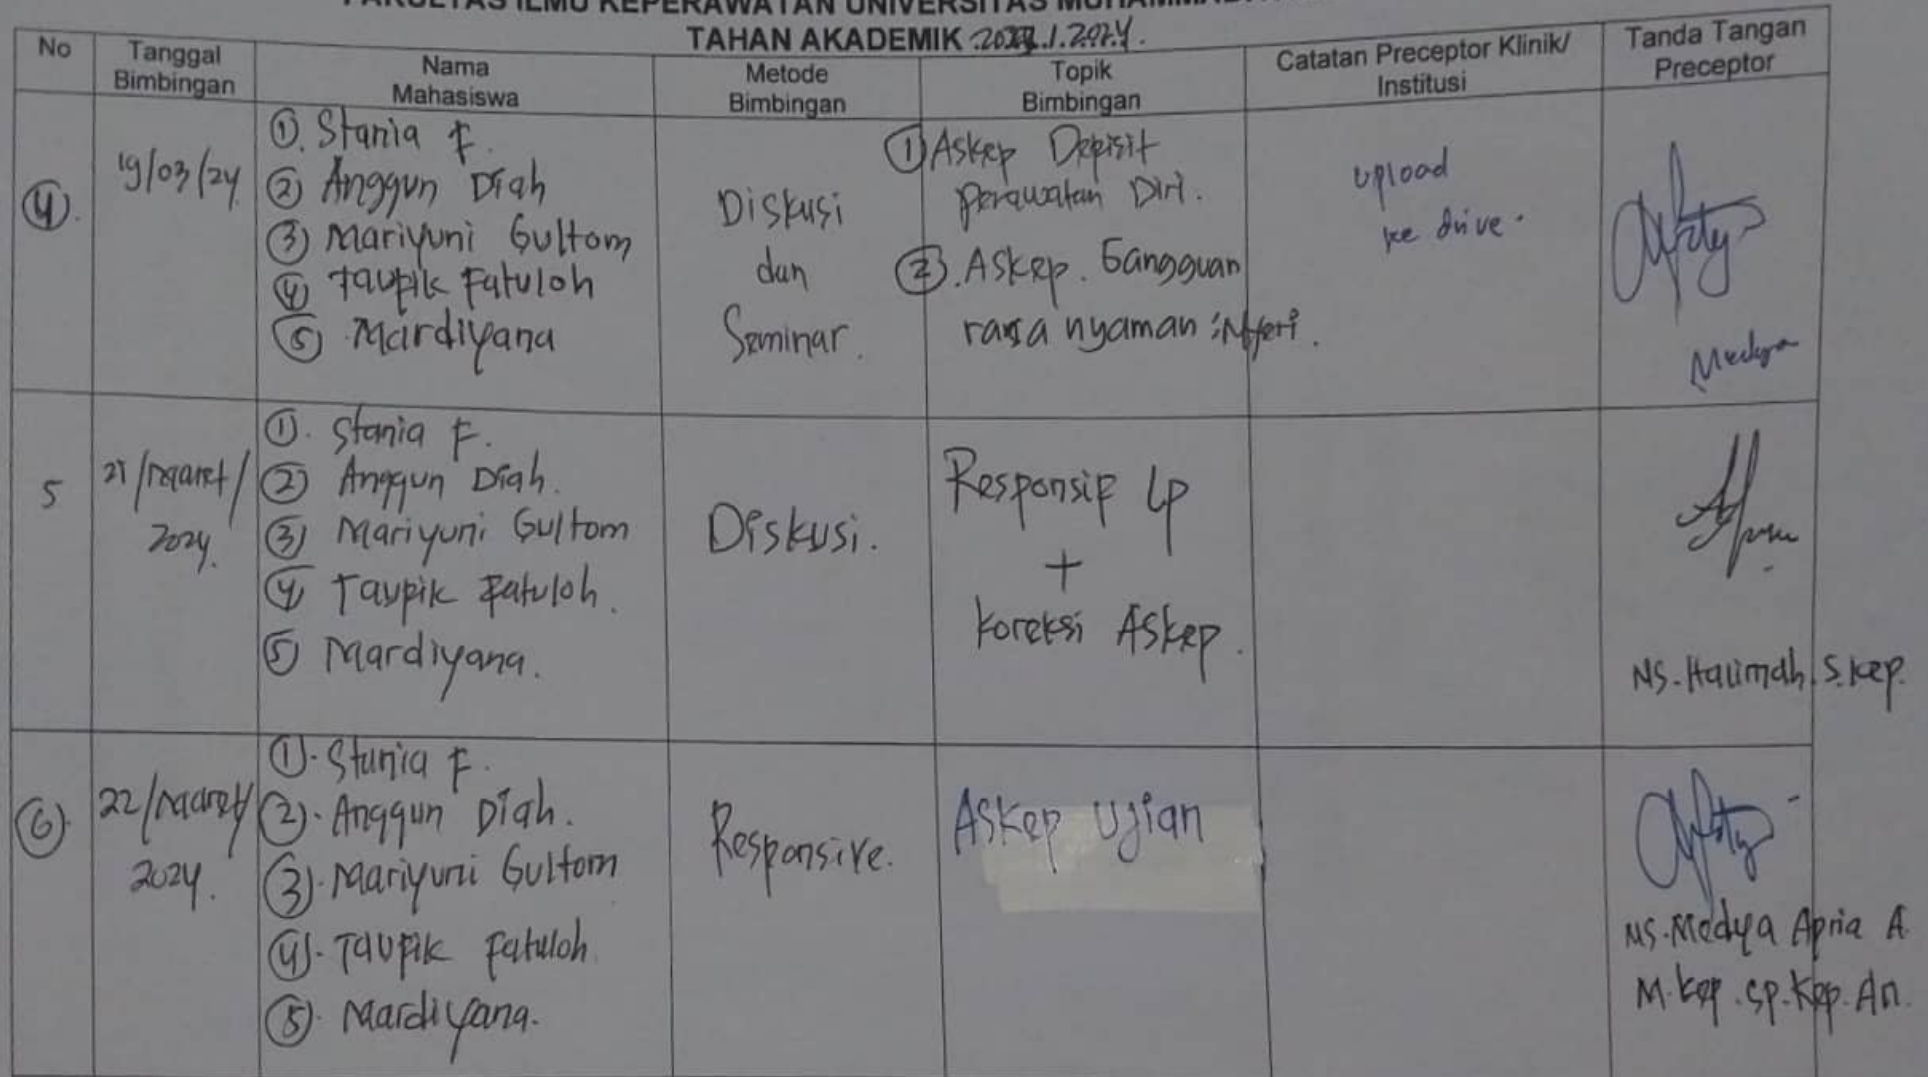 FAKULTAS ILMU KEPERAWATAN UNIVERSITAS
TAHAN AKADEMIK
No
Tanggal
Bimbingan
Nama
Mahasiswa
Metode
Bimbingan
Topik
Bimbingan
Catatan Preceptor Klinik/
Institusi
Tanda Tangan
Preceptor
4.
19/03/24
1. Stania F.
2 Anggun Diah
3 Mariyuni Gultom
4 Taupik Fatuloh
5. Mardiyana
Diskusi
dan
Seminar.
1 Askep Depisit
perawatan Diri.
2. Askep. Gangguan
rasa nyaman : Nyeri.
upload
ke drive.
Medya
5
21/Maret/
2024.
1. Stania F.
2 Anggun Diah.
3 Mariyuni Gultom
4 Taupik Fatuloh.
5 Mardiyana.
Diskusi.
Responsip Lp
+
koreksi Askep.
NS. Halimah S.kep.
6.
22/Maret/
2024.
1. Stania F.
2. Anggun Diah.
3. Mariyuni Gultom
4. Taupik Fatuloh
5. Mardiyana.
Responsive.
Askep Ujian
NS. Medya Apria A
M.kep.sp.Kep.An.